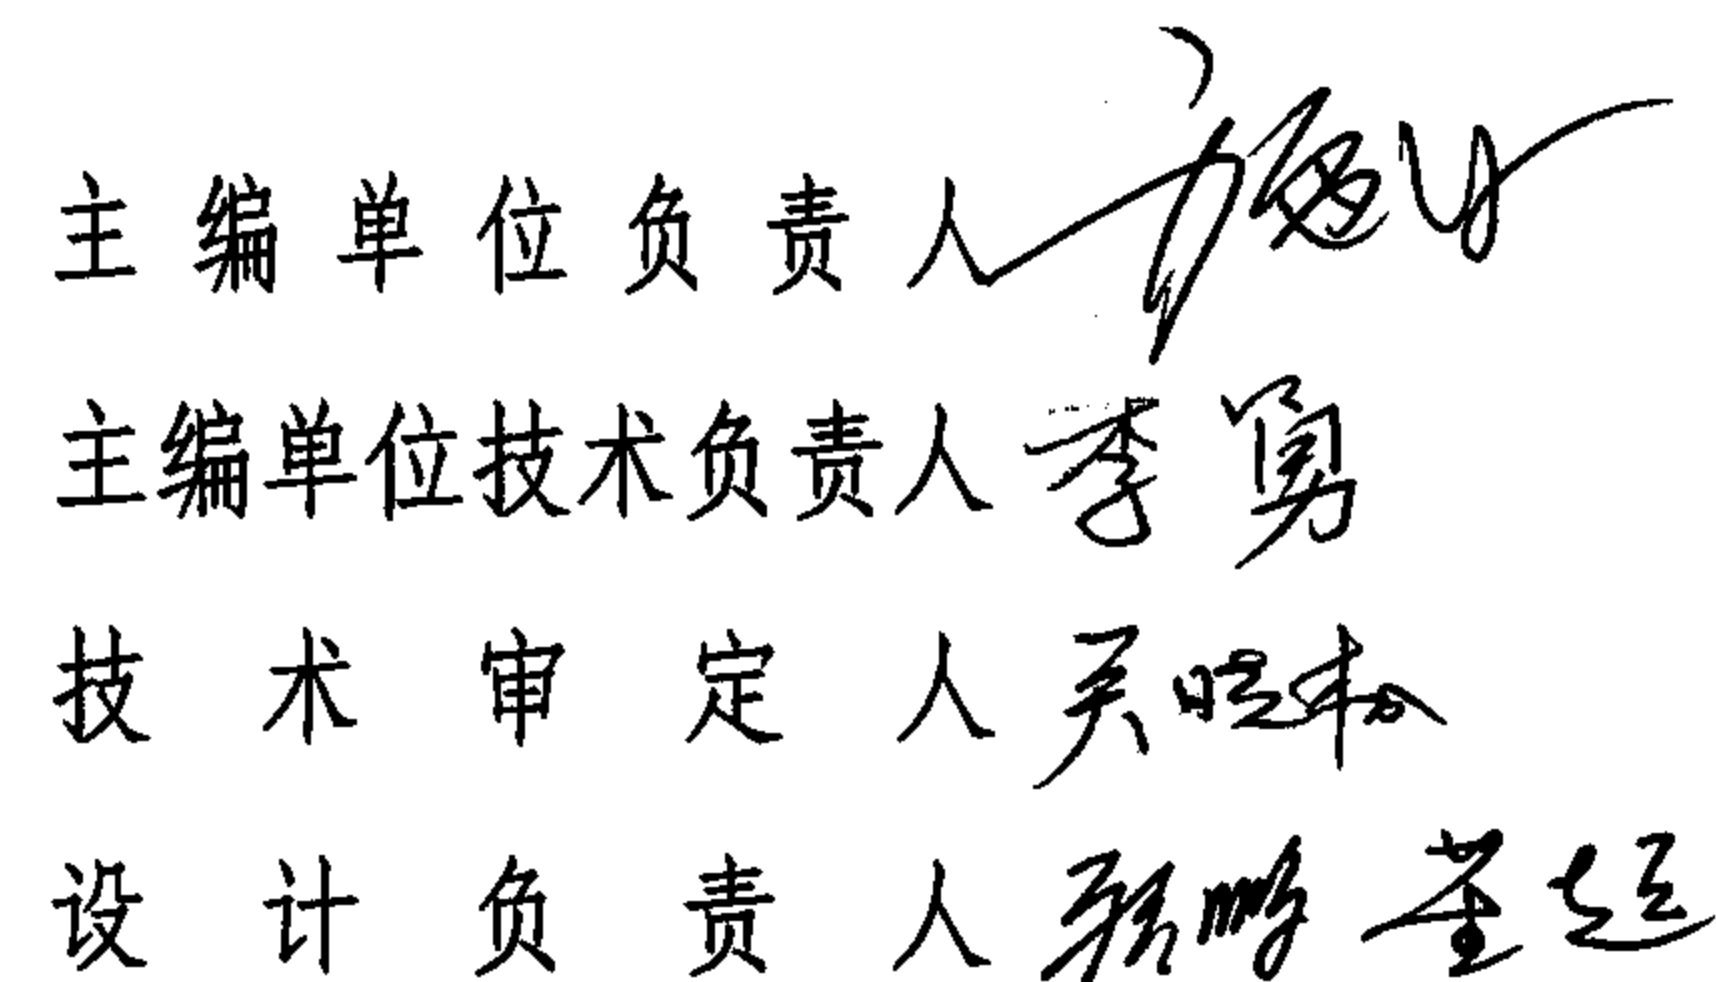 主编单位负责人
主编单位技术负责人 李勇
技术审定人 吴晓松
设计负责人 董超